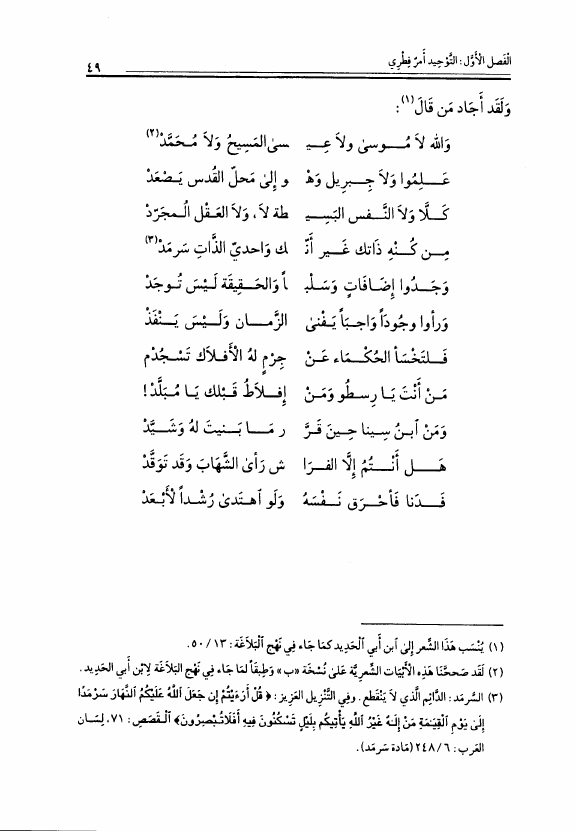 الفَصل الأَوَّل : التَّوحِيد أَمرٌ فِطْرِي
٤٩
وَلَقَد أَجَاد مَن قَالَ(١):
وَالله لاَ مُــوسىٰ ولاَ عِيـــ ـسىٰ المَسِيحُ وَلاَ مُحَمَّدْ(٢)
عَــلِمُوا وَلاَ جِــبرِيل وَهْـ ـو إِلىٰ مَحلّ القُدس يَـصْعَدْ
كَــلَّا وَلاَ النَّــفس البَسِيـ ـطَة لاَ، وَلاَ العَـقْل الْـمجَرّدْ
مِــن كُــنْهِ ذَاتك غَــير أَنّـ ـك وَاحديّ الذَّاتِ سَرمَدْ(٣)
وَجَــدُوا إِضَافَاتٍ وَسَلْبـ ـاً وَالحَقِيقَة لَـيْسَ تُـوجَدْ
وَرأوا وجُودَاً وَاجبَاً يَـفْنىٰ الزَّمــان وَلَـيْسَ يَــنْفَدْ
فَــلتَخْسَأ الحُكْــمَاء عَــنْ جِرْمٍ لهُ الأَفلاَك تَسْـجُدْم
مَــنْ أَنْتَ يَـا رِسطُو وَمَـنْ إِفــلاَطُ قَـبْلك يَـا مُـبَلَّدْ!
وَمَنْ ٱبـنُ سِينا حِـينَ قَـرَّ ر مَـــا بَــنيت لَهُ وَشَـــيَّدْ
هَـــل أَنْــتُمُ إِلَّا الفَـرَا ش رَأىٰ الشَّهَابَ وَقَد تَوَقَّدْ
فَــدَنا فَأحْــرَق نَــفْسَهُ وَلَو ٱهـتَدىٰ رُشْـداً لأَبْـعَدْ
(١) يُنْسَب هَذَا الشِّعر إِلىٰ ٱبن أَبي ٱلْحَدِيد كمَا جَاء فِي نَهْج ٱلْبَلاَغَة : ١٣/ ٥٠.
(٢) لَقَد صَححنَا هَذِهِ الأَبْيَات الشّعريَّة عَلىٰ نُسْخَة «ب» وَطِبقَاً لمَا جَاء فِي نَهْج البَلاَغَة لاِبْن أَبي الحَدِيد.
(٣) السَّرمَد: الدَّائِم الَّذي لاَ يَنْقطِع. وفِي التَّنْزِيل العَزِيز: ﴿ قُلْ أَرَءَيْتُمْ إِن جَعَلَ ٱللَّهُ عَلَيْكُمُ ٱلنَّهَارَ سَرْمَدًا
إِلَىٰ يَوْمِ ٱلْقِيَٰمَةِ مَنْ إِلَٰهٌ غَيْرُ ٱللَّهِ يَأْتِيكُم بِلَيْلٍ تَسْكُنُونَ فِيهِ أَفَلَاتُبْصِرُونَ﴾ ٱلْقَصَص: ٧١، لِسَان
العَرب: ٦/ ٢٤٨ (مَادة سَرمَد).